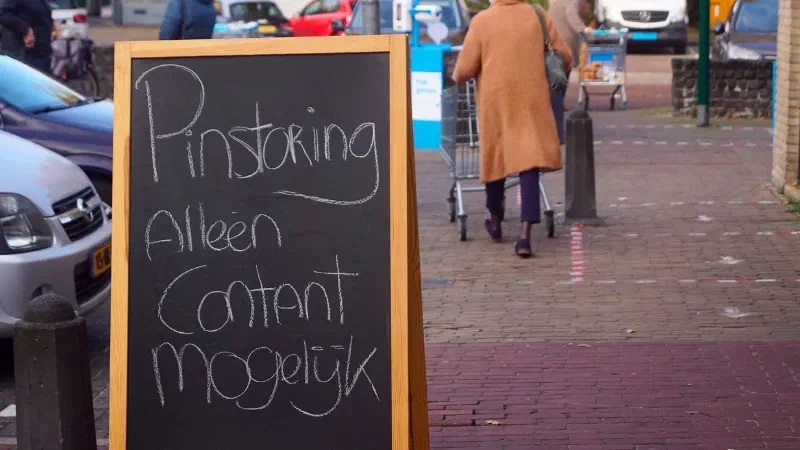 Pinstoring
Alleén
Contant
mogelijk